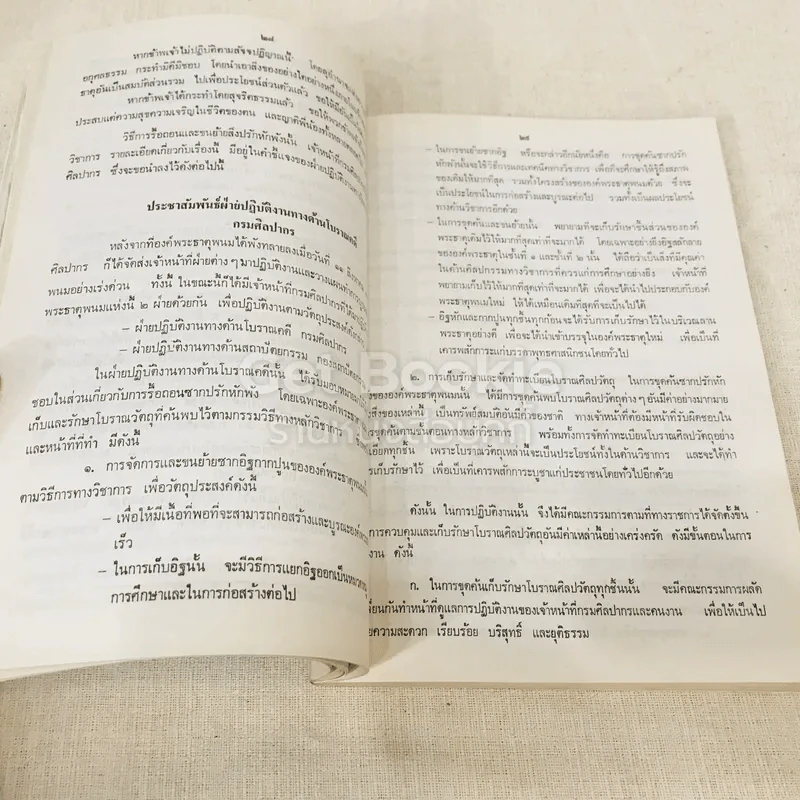 ๒๘
หากข้าพเจ้าไม่ปฏิบัติตามสัจจปฏิญาณนี้ โดย
อกุศลธรรม กระทำมิดีมิชอบ โดยนำเอาสิ่งของอย่างใดอย่างหนึ่งภายใน
ธาตุอันเป็นสมบัติส่วนรวม ไปเพื่อประโยชน์ส่วนตัวแล้ว ขอให้
หากข้าพเจ้าได้กระทำโดยสุจริตธรรมแล้ว ขอให้
ประสบแต่ความสุขความเจริญในชีวิตของตน และญาติพี่น้องทั้งหลาย
วิธีการรื้อถอนและขนย้ายสิ่งปรักหักพังนั้น เจ้าหน้าที่
วิชาการ รายละเอียดเกี่ยวกับเรื่องนี้ มีอยู่ในคำชี้แจงของฝ่ายปฏิบัติงาน
ศิลปากร ซึ่งจะขอนำลงไว้ดังต่อไปนี้
ประชาสัมพันธ์ฝ่ายปฏิบัติงานทางด้านโบราณคดี
กรมศิลปากร
หลังจากที่องค์พระธาตุพนมได้พังทลายลงเมื่อวันที่ ๑๑
ศิลปากร ก็ได้จัดส่งเจ้าหน้าที่ฝ่ายต่าง ๆ มาปฏิบัติงานและวางแผน
พนมอย่างเร่งด่วน ทั้งนี้ ในขณะนี้ก็ได้มีเจ้าหน้าที่กรมศิลปากรที่ได้มา
พระธาตุพนมแห่งนี้ ๒ ฝ่ายด้วยกัน เพื่อปฏิบัติงานตามวัตถุประสงค์
– ฝ่ายปฏิบัติงานทางด้านโบราณคดี กรมศิลปากร
– ฝ่ายปฏิบัติงานทางด้านสถาปัตยกรรม กอง
ในฝ่ายปฏิบัติงานทางด้านโบราณคดีนั้น ได้รับมอบหมาย
ชอบในส่วนเกี่ยวกับการรื้อถอนซากปรักหักพัง โดยเฉพาะองค์พระธาตุ
เก็บและรักษาโบราณวัตถุที่ค้นพบไว้ตามกรรมวิธีทางหลักวิชาการ
และหน้าที่ที่ทำ มีดังนี้
๑. การจัดการและขนย้ายซากอิฐกากปูนขององค์พระธาตุพนม
ตามวิธีการทางวิชาการ เพื่อวัตถุประสงค์ดังนี้
– เพื่อให้มีเนื้อที่พอที่จะสามารถก่อสร้างและบูรณะองค์
เร็ว
– ในการเก็บอิฐนั้น จะมีวิธีการแยกอิฐออกเป็นหมวด
การศึกษาและในการก่อสร้างต่อไป
๒๙
– ในการขนย้ายซากอิฐ หรือจะกล่าวอีกนัยหนึ่งคือ การขุดค้นซากปรัก
หักพังนั้นจะใช้วิธีการและเทคนิคทางวิชาการ เพื่อที่จะศึกษาให้รู้ถึงสภาพ
ของเดิมให้มากที่สุด รวมทั้งโครงสร้างขององค์พระธาตุพนมด้วย ซึ่งจะ
เป็นประโยชน์ในการก่อสร้างและบูรณะต่อไป รวมทั้งเป็นผลประโยชน์
ทางด้านวิชาการอีกด้วย
– ในการขุดค้นและขนย้ายนั้น พยายามที่จะเก็บรักษาชิ้นส่วนขององค์
พระธาตุเดิมไว้ให้มากที่สุดเท่าที่จะมากได้ โดยเฉพาะอย่างยิ่งอิฐสลักลาย
ขององค์พระธาตุในชั้นที่ ๑ และชั้นที่ ๒ นั้น ได้ถือว่าเป็นสิ่งที่มีคุณค่า
ในด้านศิลปกรรมทางวิชาการที่ควรแก่การศึกษาอย่างยิ่ง เจ้าหน้าที่
พยายามเก็บไว้ให้มากที่สุดเท่าที่จะมากได้ เพื่อจะได้นำไปประกอบกับองค์
พระธาตุพนมใหม่ ให้ได้เหมือนเดิมที่สุดที่จะเป็นไปได้
– อิฐหักและกากปูนทุกชิ้นทุกก้อนจะได้รับการเก็บรักษาไว้ในบริเวณลาน
พระธาตุอย่างดี เพื่อจะได้นำเข้าบรรจุในองค์พระธาตุใหม่ เพื่อเป็นที่
เคารพสักการะแก่บรรดาพุทธศาสนิกชนโดยทั่วไป
๒. การเก็บรักษาและจัดทำทะเบียนโบราณศิลปวัตถุ ในการขุดค้นซากปรักหัก
ขององค์พระธาตุพนมนั้น ได้มีการขุดค้นพบโบราณศิลปวัตถุต่าง ๆ อันมีค่าอย่างมากมาย
สิ่งของเหล่านี้ เป็นทรัพย์สมบัติอันมีค่าของชาติ ทางเจ้าหน้าที่ต้องมีหน้าที่รับผิดชอบใน
ขุดค้นตามขั้นตอนทางหลักวิชาการ พร้อมทั้งการจัดทำทะเบียนโบราณศิลปวัตถุอย่าง
เอียดทุกชิ้น เพราะโบราณวัตถุเหล่านี้จะเป็นประโยชน์ทั้งในด้านวิชาการ และจะได้ทำ
การเก็บรักษาไว้ เพื่อเป็นที่เคารพสักการะบูชาแก่ประชาชนโดยทั่วไปอีกด้วย
ดังนั้น ในการปฏิบัติงานนั้น จึงได้มีคณะกรรมการตามที่ทางราชการได้จัดตั้งขึ้น
การควบคุมและเก็บรักษาโบราณศิลปวัตถุอันมีค่าเหล่านี้อย่างเคร่งครัด ดังมีขั้นตอนในการ
งาน ดังนี้
ก. ในการขุดค้นเก็บรักษาโบราณศิลปวัตถุทุกชิ้นนั้น จะมีคณะกรรมการผลัด
เปลี่ยนกันทำหน้าที่ดูแลการปฏิบัติงานของเจ้าหน้าที่กรมศิลปากรและคนงาน เพื่อให้เป็นไป
ยความสะดวก เรียบร้อย บริสุทธิ์ และยุติธรรม